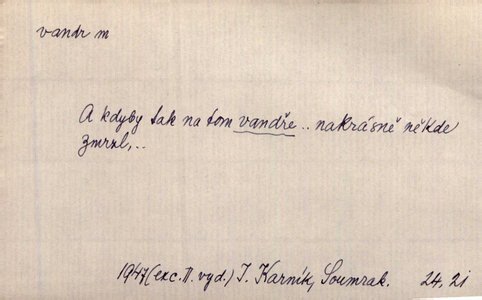 vandr m
A kdyby tak na tom vandře .. nakrásně někde
zmrzl,..
1947 (exc. II. vyd.) J. Karník, Soumrak. 24, 21